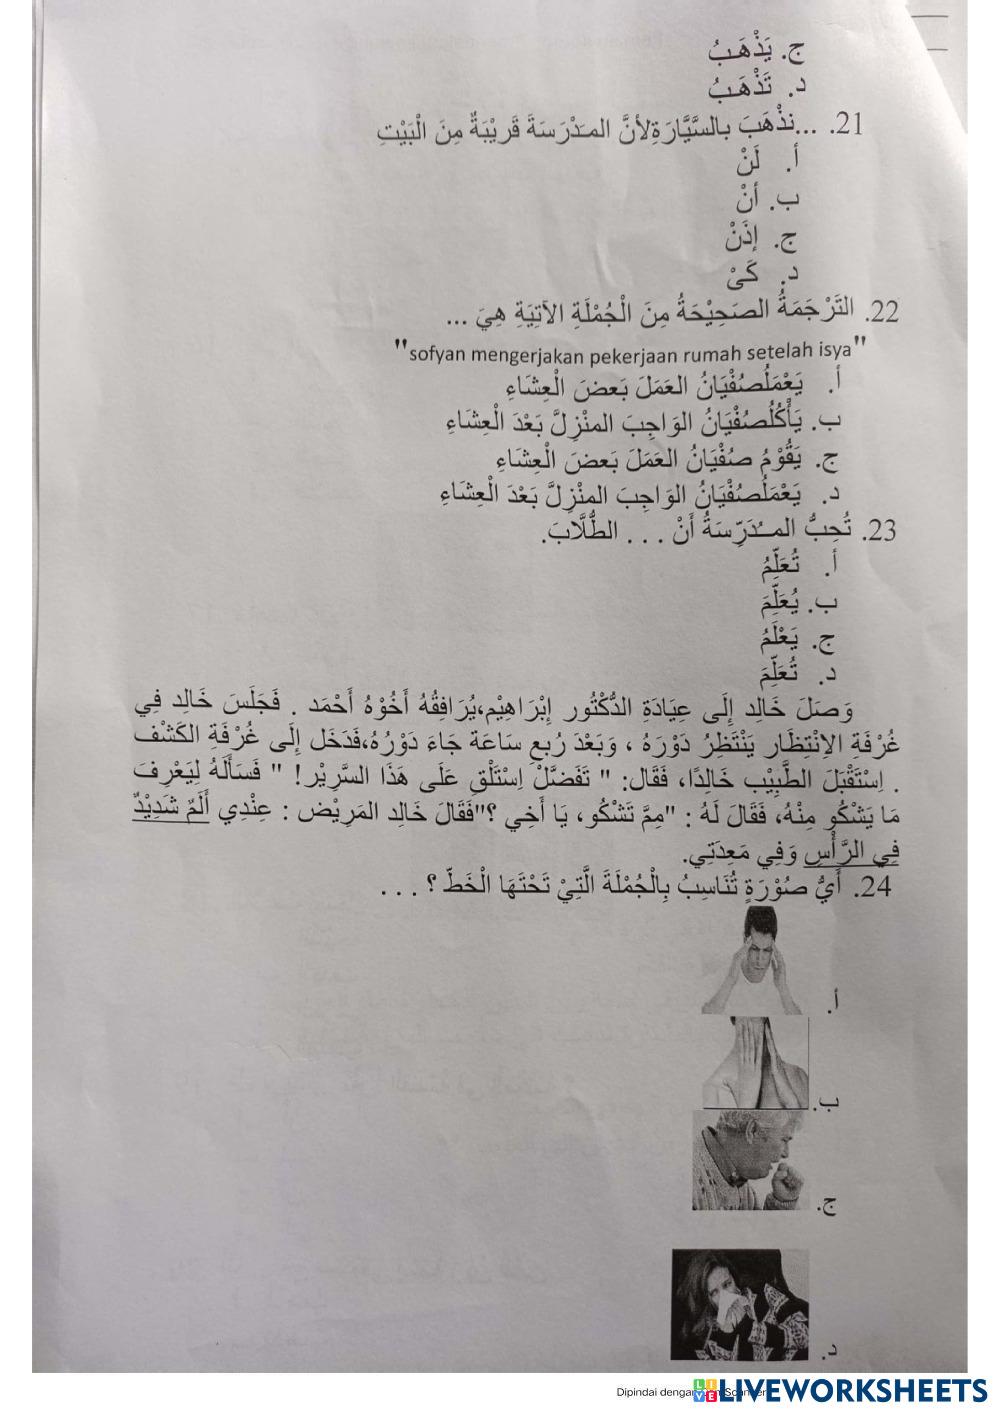 ج. يَذْهَبُ
د. تَذْهَبُ
21. ...نذْهَبَ بالسَّيَّارَةِلأنَّ المدْرَسَةَ قَرِيْبَةٌ مِنَ الْبَيْتِ
أ. لَنْ
ب. أنْ
ج. إذَنْ
د. كَىْ
22. التَّرْجَمَةُ الصَحِيْحَةُ مِنَ الْجُمْلَةِ الآتِيَةِ هِيَ ...
"sofyan mengerjakan pekerjaan rumah setelah isya"
أ. يَعْمَلُصُفْيَانُ العَمَلَ بَعضَ الْعِشَاءِ
ب. يَأْكُلُصُفْيَانُ الوَاجِبَ المنْزِلَّ بَعْدَ الْعِشَاءِ
ج. يَقُوْمُ صُفْيَانُ العَمَلَ بَعضَ الْعِشَاءِ
د. يَعْمَلُصُفْيَانُ الوَاجِبَ المنْزِلَّ بَعْدَ الْعِشَاءِ
23. تُحِبُّ المـُدَرِّسَةُ أَنْ . . . الطُّلَّابَ.
أ. تُعَلِّمُ
ب. يُعَلِّمَ
ج. يَعْلَمُ
د. تُعَلِّمَ
وَصَلَ خَالِد إِلَى عِيَادَةِ الدُّكْتُور إِبْرَاهِيْم،يُرَافِقُهُ أَخُوْهُ أَحْمَد . فَجَلَسَ خَالِد فِي
غُرْفَةِ الاِنْتِظَار يَنْتَظِرُ دَوْرَهُ ، وَبَعْدَ رُبعِ سَاعَة جَاءَ دَوْرُهُ،فَدَخَل إِلَى غُرْفَةِ الكَشْف
. اِسْتَقْبَلَ الطَّبِيْب خَالِدًا، فَقَال: " تَفَضَّلْ اِسْتَلْقِ عَلَى هَذَا السَّرِيْر! " فَسَأَلَهُ لِيَعْرِفَ
مَا يَشْكُو مِنْهُ، فَقَالَ لَهُ : "مِمَّ تَشْكُو، يَا أَخِي ؟"فَقَالَ خَالِد المَرِيْض : عِنْدِي أَلَمٌ شَدِيْدٌ
فِي الرَّأْسِ وَفِي مَعِدَتِي.
24. أَيُّ صُوْرَةٍ تُنَاسِبُ بِالْجُمْلَةَ الَّتِيْ تَحْتَهَا الْخَطّ ؟ . . .
أ.
ب.
ج.
د.
LIVEWORKSHEETS